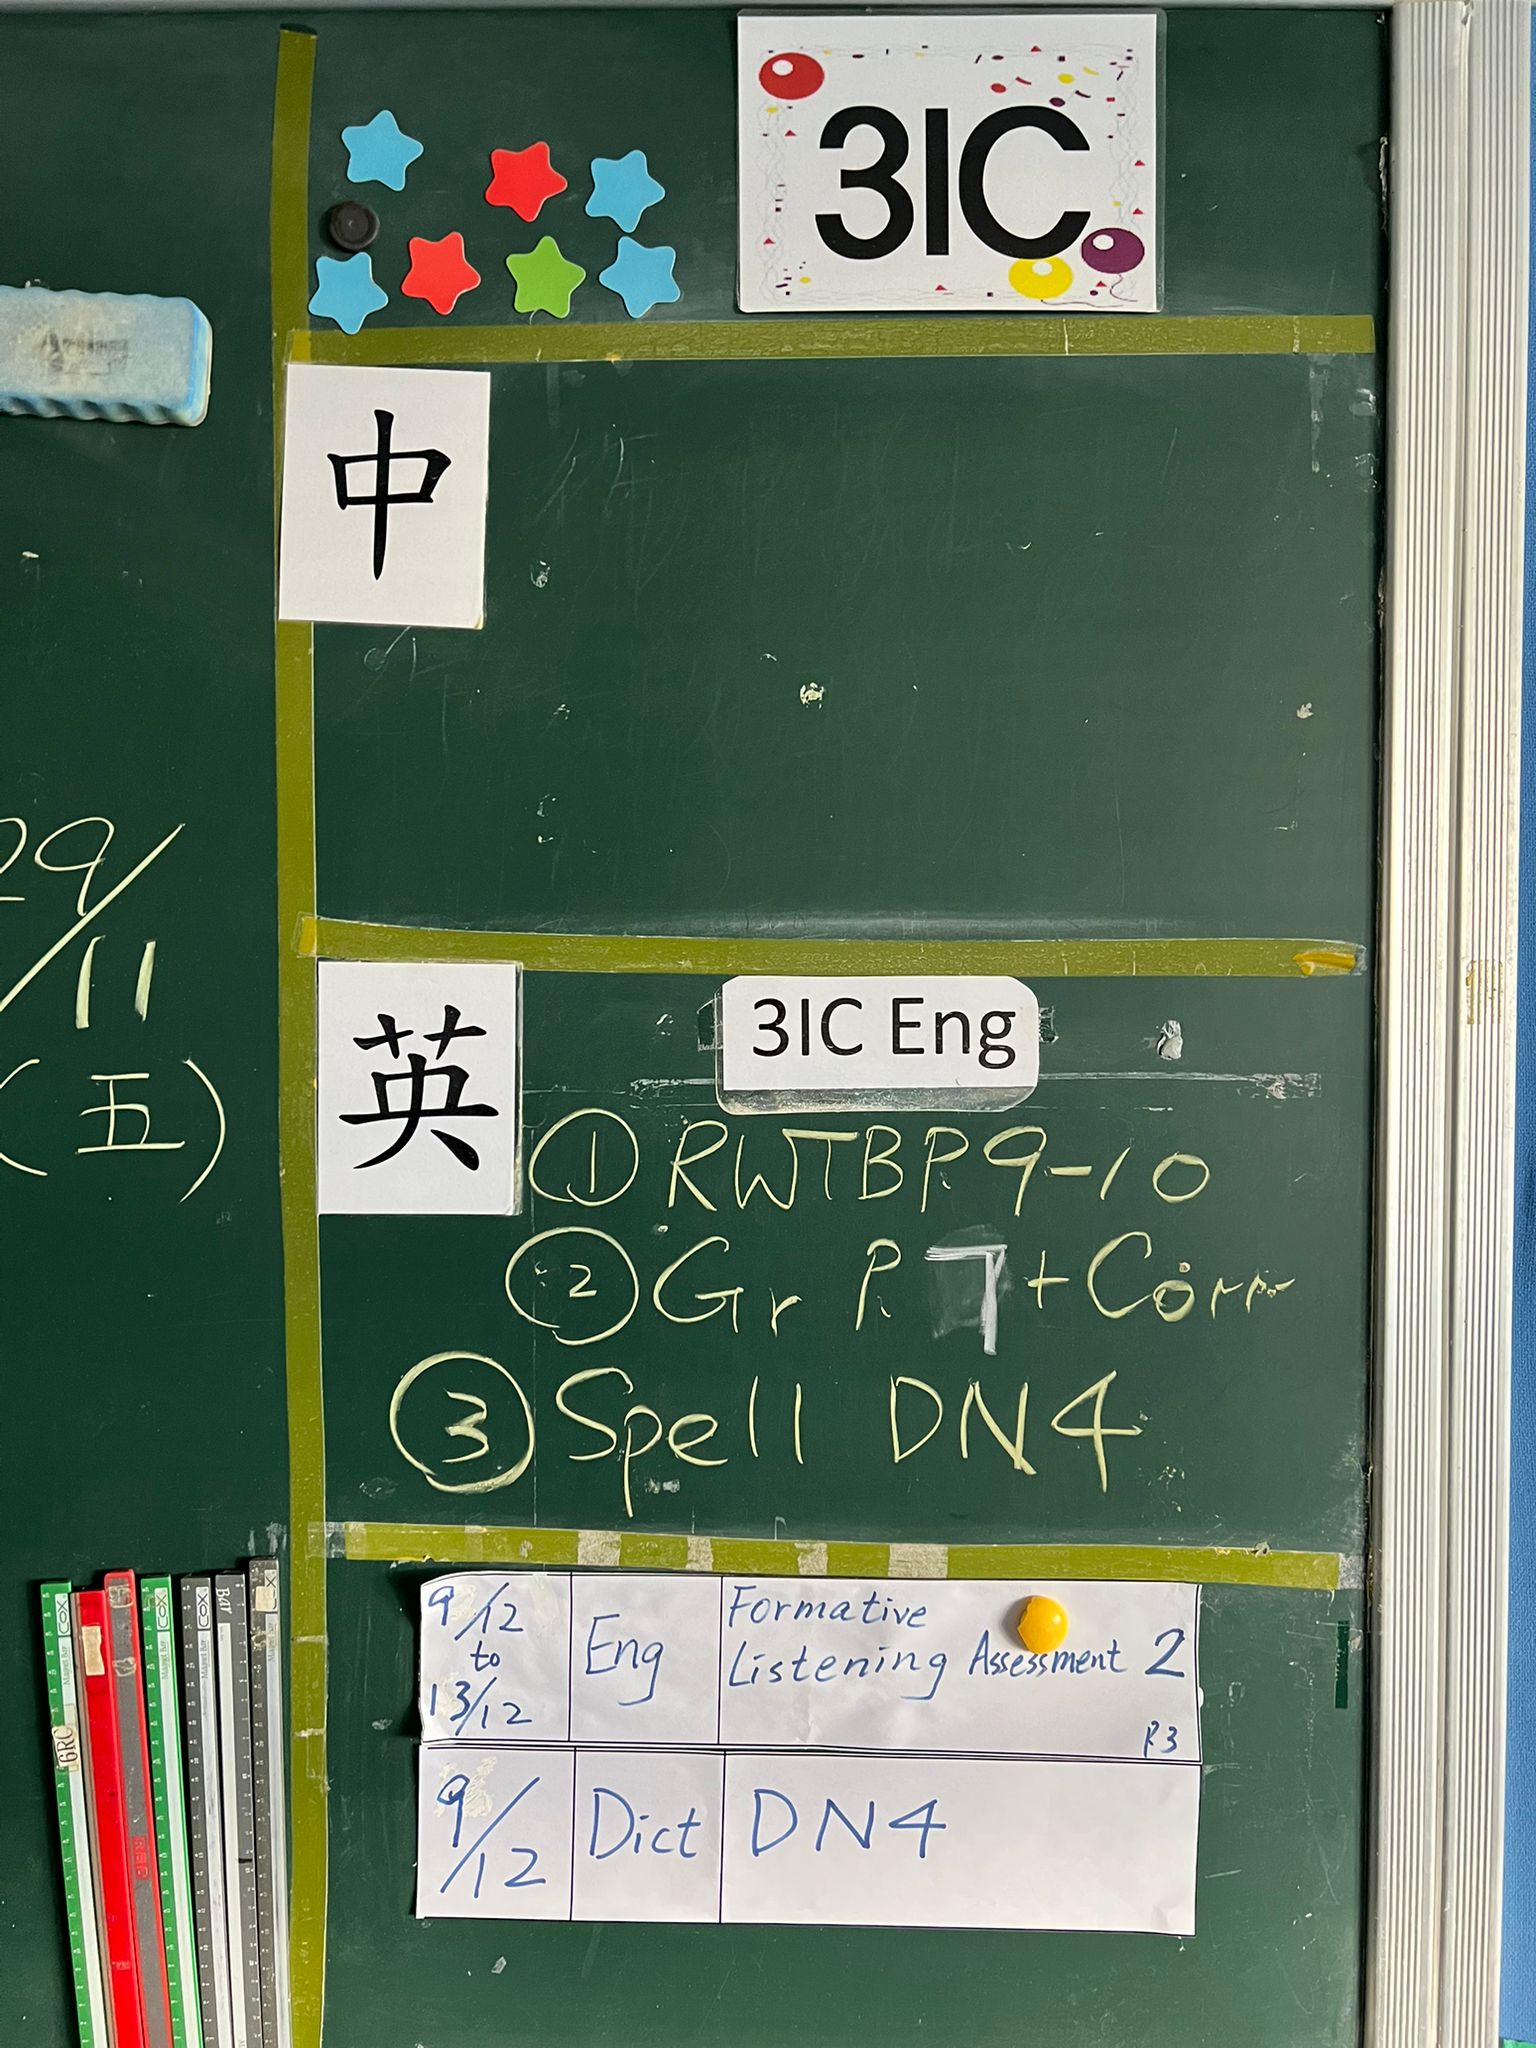 3IC
中
29/
11
(五)
英
3IC Eng
① RWTB P.9-10
② Gr P.7 + Corr
③ Spell DN4
9/12 to 13/12 Eng Formative Listening Assessment 2 P.3
9/12 Dict DN4
6RC
COX
COX
COX
Magnet Bar
Bar